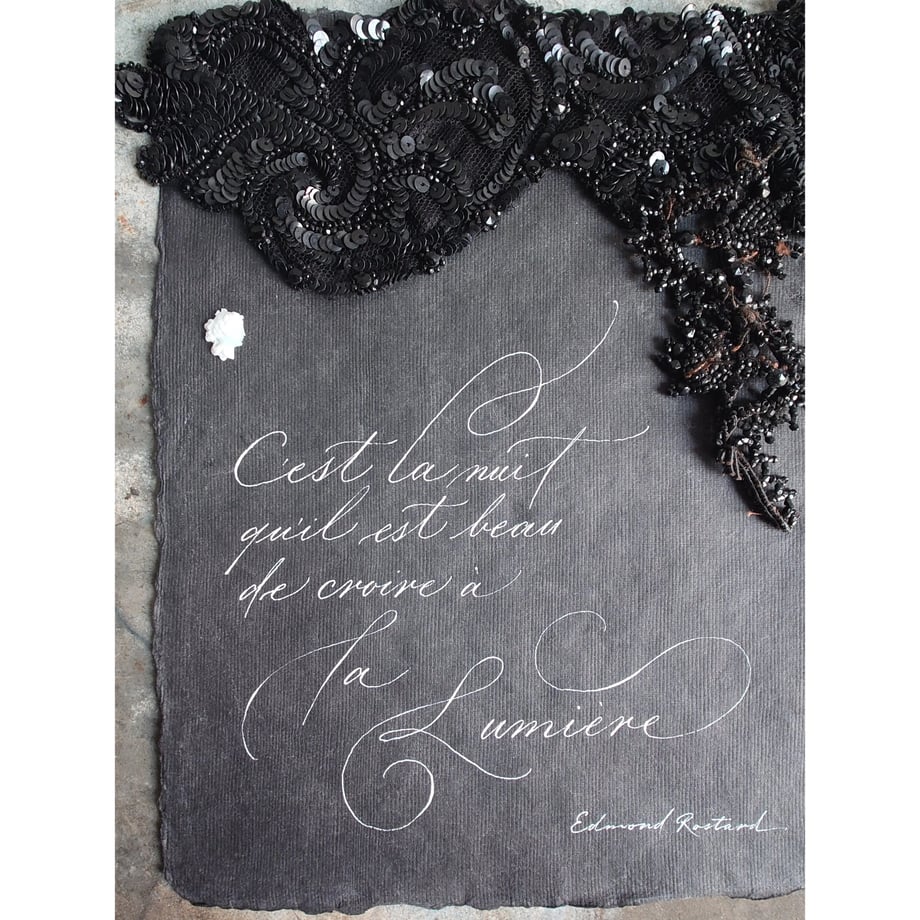 C'est la nuit
qu'il est beau
de croire à
la
Lumière
Edmond Rostand